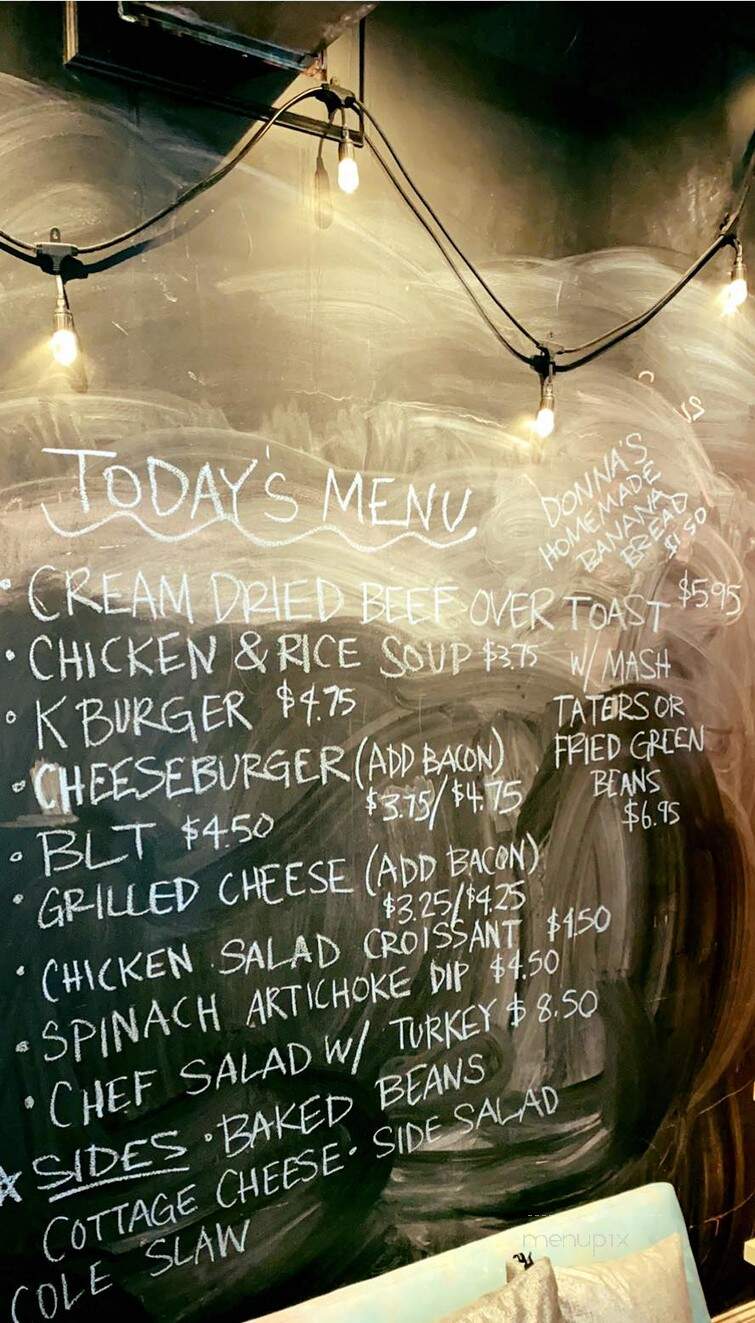 TODAY'S MENU
DONNA'S
HOMEMADE
BANANA
BREAD
$1.50
• CREAM DRIED BEEF OVER TOAST $5.95
W/ MASH
TATERS OR
FRIED GREEN
BEANS
$6.95
• CHICKEN & RICE SOUP $3.75
• K BURGER $4.75
• CHEESEBURGER (ADD BACON)
$3.75/$4.75
• BLT $4.50
• GRILLED CHEESE (ADD BACON)
$3.25/$4.25
• CHICKEN SALAD CROISSANT $4.50
• SPINACH ARTICHOKE DIP $4.50
• CHEF SALAD W/ TURKEY $8.50
☆ SIDES • BAKED BEANS
COTTAGE CHEESE • SIDE SALAD
COLE SLAW
menupix